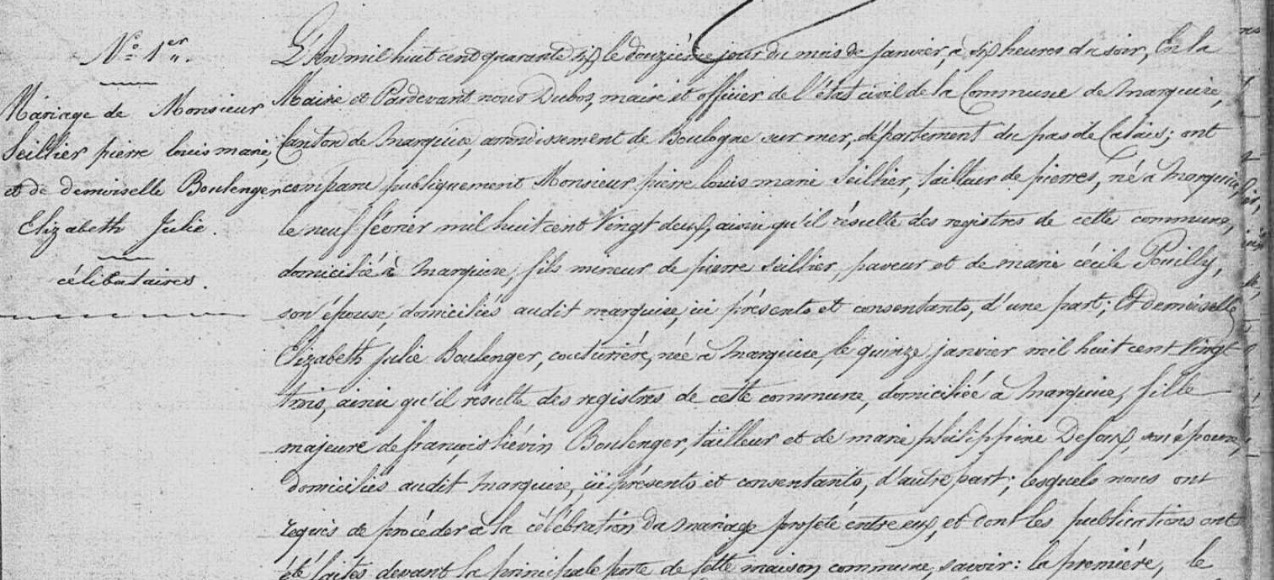 N.° 1.er
Mariage de Monsieur
Seillier pierre louis marie,
et de demoiselle Boulenger
Elizabeth Julie.
célibataires.
L'An mil huit cent quarante six, le douzième jour du mois de janvier, à six heures du soir, En la
Mairie et Pardevant nous Dubos, maire et officier de l'état civil de la Commune de Marquise,
Canton de Marquise, arrondissement de Boulogne sur mer, département du pas de Calais; ont
comparu publiquement Monsieur pierre louis marie Seillier, tailleur de pierres, né à Marquise,
le neuf février mil huit cent Vingt deux, ainsi qu'il résulte des registres de cette commune,
domicilié à Marquise, fils mineur de pierre Seillier, paveur et de marie cécile Pouilly,
son épouse, domiciliés audit marquise, ici présents et consentants, d'une part; Et demoiselle
Elizabeth Julie Boulenger, couturière, née à Marquise, le quinze janvier mil huit cent Vingt
trois, ainsi qu'il résulte des registres de cette commune, domiciliée à Marquise, fille
majeure de françois liévin Boulenger, tailleur et de marie philippine son épouse,
domiciliés audit Marquise, ici présents et consentants, d'autre part; lesquels nous ont
requis de procéder à la célébration du mariage projeté entre eux, et dont les publications ont
été faites devant la principale porte de cette maison commune, savoir: la première, le